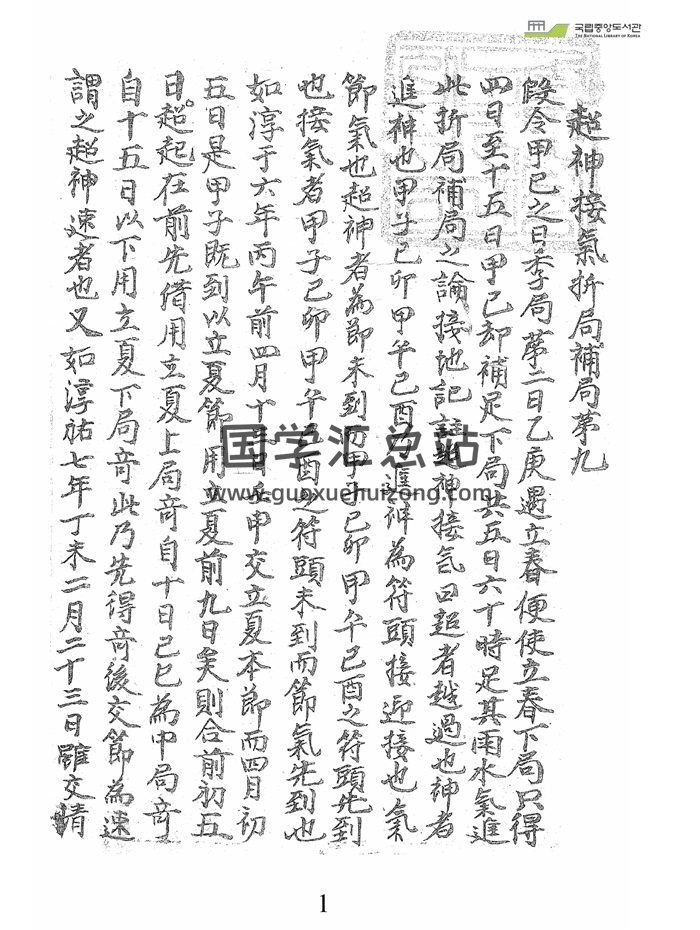 국립중앙도서관
THE NATIONAL LIBRARY OF KOREA
超神接氣折局補局第九
假令甲己之日季局第二日乙庚遇立春便使立春下局只得
四日至十五日甲己却補足下局共五日六十時足其雨水氣進
此折局補局之論接地記註超神接氣曰超者越過也神者
進神也甲子己卯甲午己酉乃進神為符頭接迎接也氣
節氣也超神者為節未到而甲子己卯甲午己酉之符頭先到
也接氣者甲子己卯甲午己酉之符頭未到而節氣先到也
如淳于六年丙午前四月十日壬申交立夏本節而四月初
五日是甲子既到以立夏節用立夏前九日矣則合前初五
日超起在前先借用立夏上局竒自十日己巳為中局竒
自十五日以下用立夏下局竒此乃先得竒後交節為速
謂之超神速者也又如淳祐七年丁未二月二十三日雖交清
国学汇总站
www.guoxuehuizong.com
1